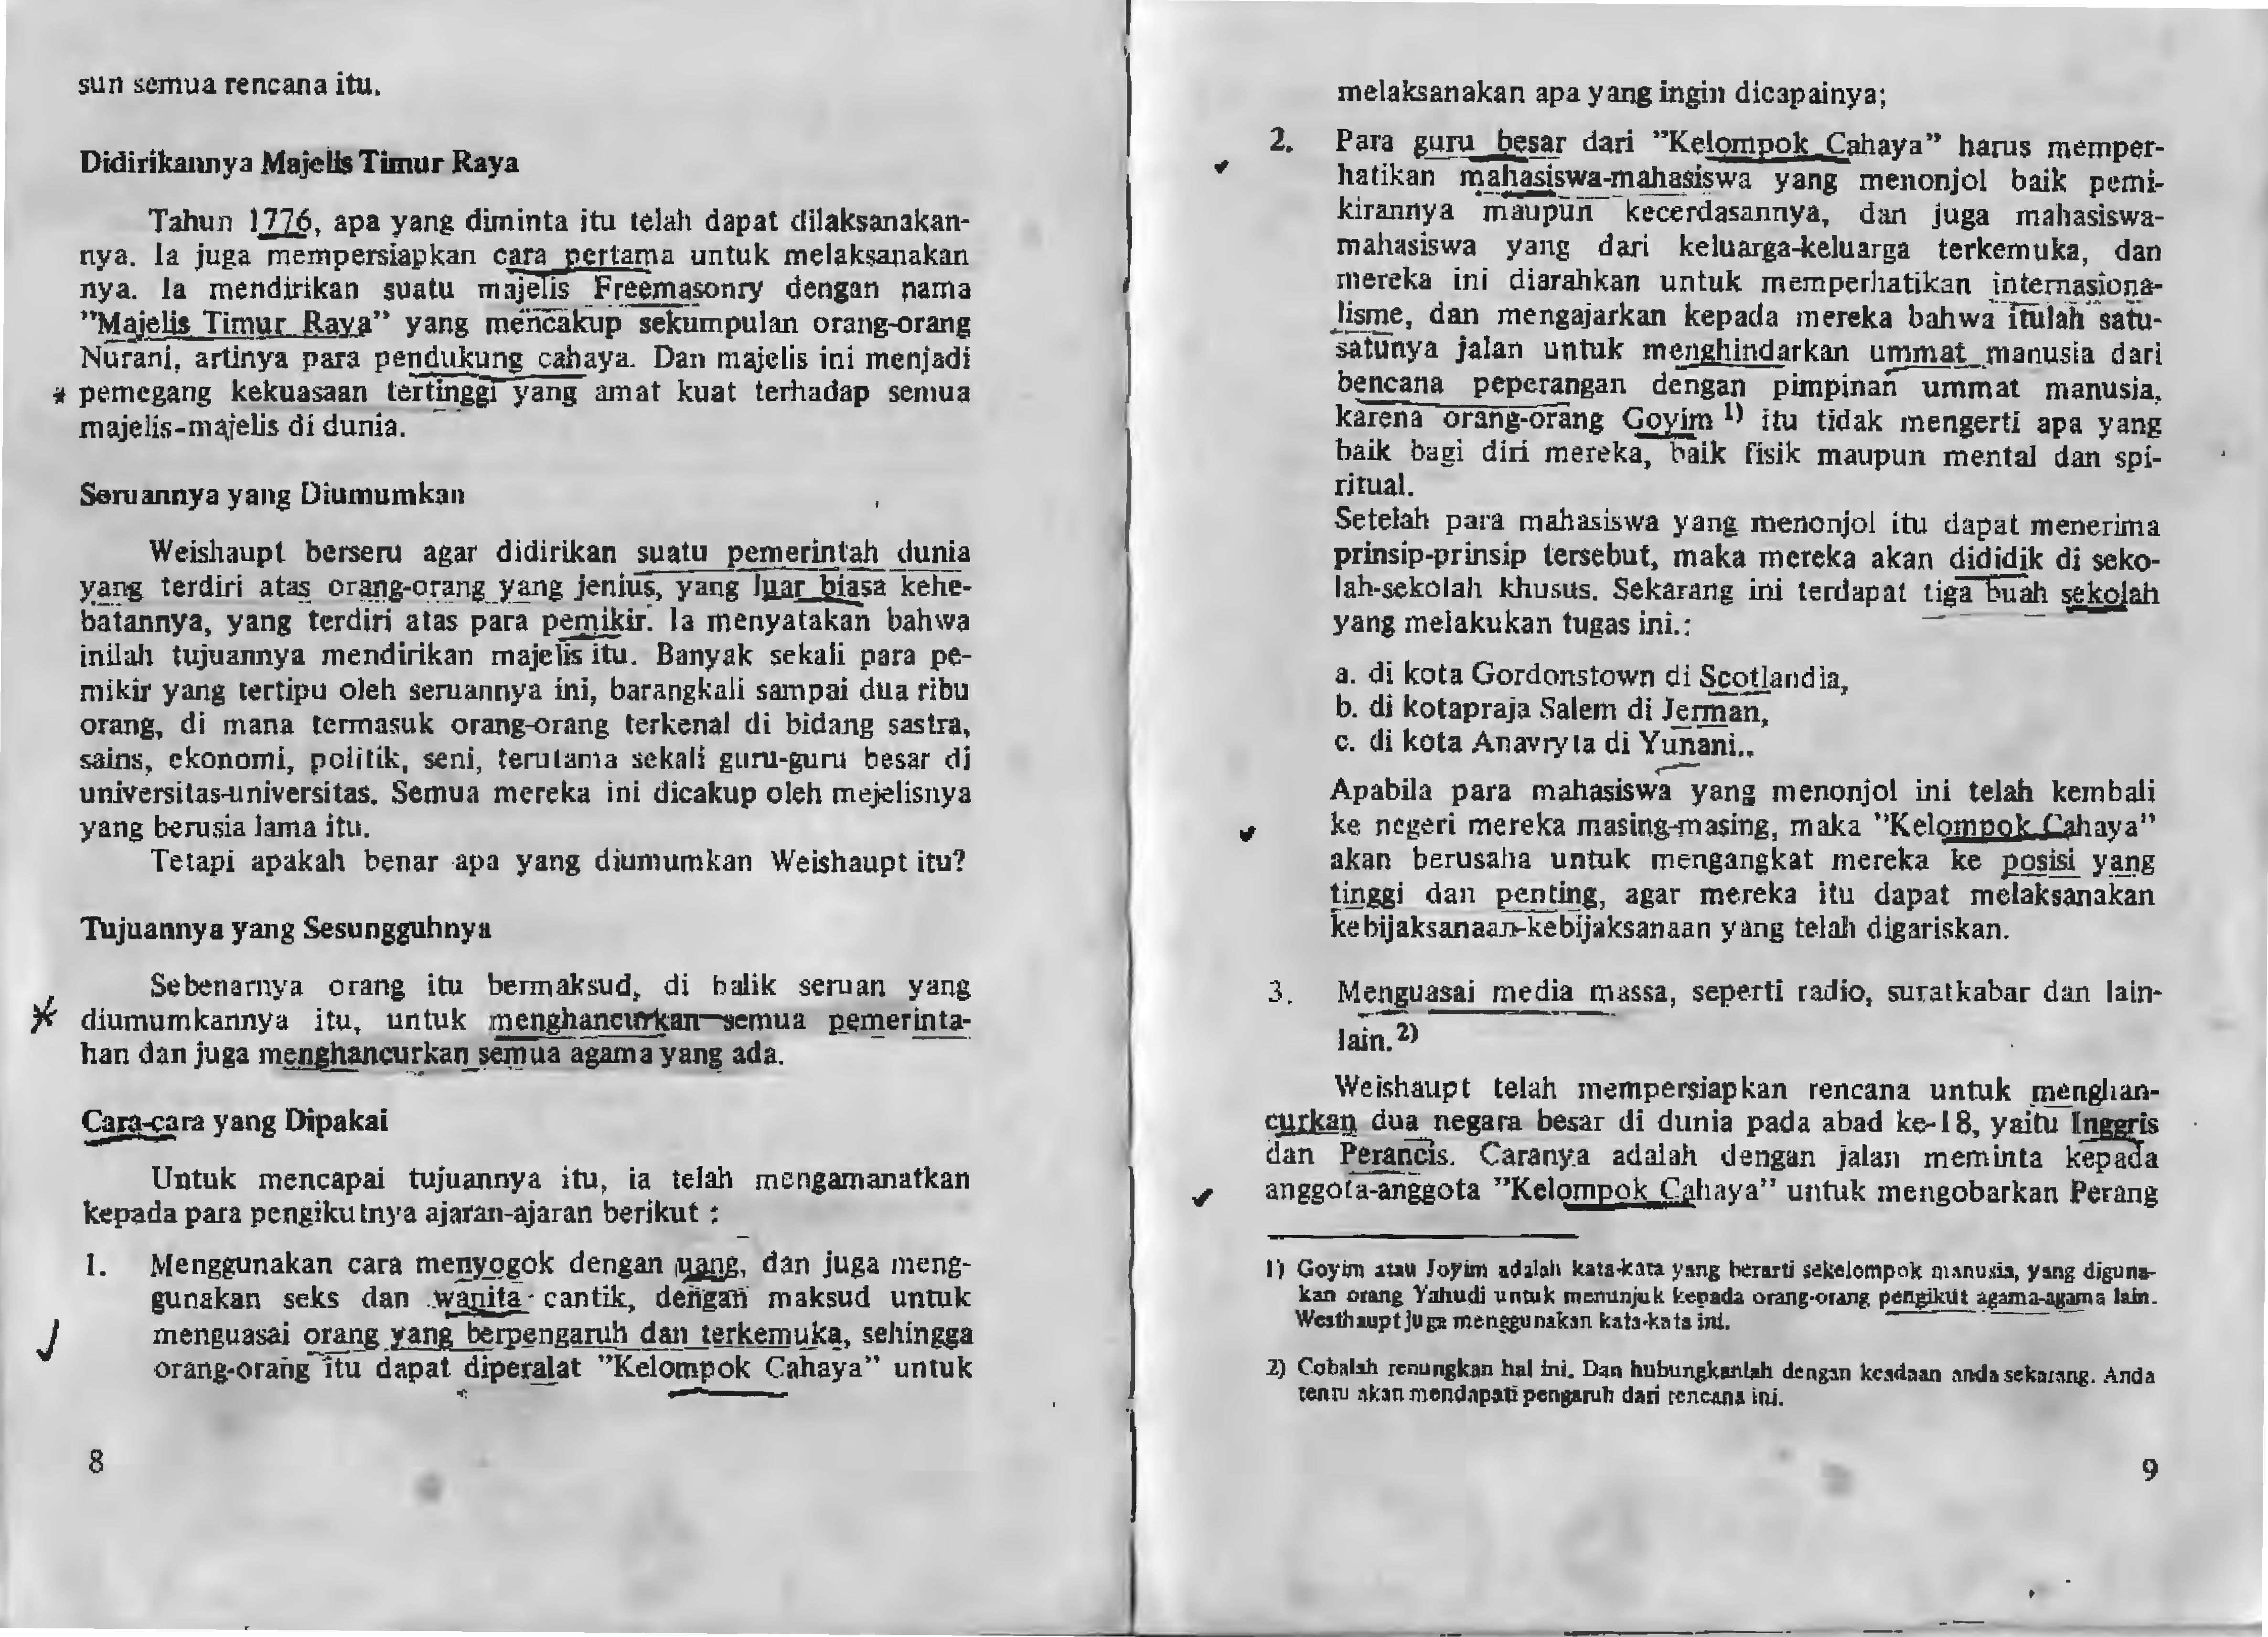 sun semua rencana itu.
Didirikannya Majelis Timur Raya
Tahun 1776, apa yang diminta itu telah dapat dilaksanakan-
nya. Ia juga mempersiapkan cara pertama untuk melaksanakan
nya. Ia mendirikan suatu majelis Freemasonry dengan nama
"Majelis Timur Raya" yang mencakup sekumpulan orang-orang
Nurani, artinya para pendukung cahaya. Dan majelis ini menjadi
pemegang kekuasaan tertinggi yang amat kuat terhadap semua
majelis-majelis di dunia.
Seruannya yang Diumumkan
Weishaupt berseru agar didirikan suatu pemerintah dunia
yang terdiri atas orang-orang yang jenius, yang luar biasa kehe-
batannya, yang terdiri atas para pemikir. Ia menyatakan bahwa
inilah tujuannya mendirikan majelis itu. Banyak sekali para pe-
mikir yang tertipu oleh seruannya ini, barangkali sampai dua ribu
orang, di mana termasuk orang-orang terkenal di bidang sastra,
sains, ekonomi, politik, seni, terutama sekali guru-guru besar di
universitas-universitas. Semua mereka ini dicakup oleh mejelisnya
yang berusia lama itu.
Tetapi apakah benar apa yang diumumkan Weishaupt itu?
Tujuannya yang Sesungguhnya
Sebenarnya orang itu bermaksud, di balik seruan yang
diumumkannya itu, untuk menghancurkan semua pemerinta-
han dan juga menghancurkan semua agama yang ada.
Cara-cara yang Dipakai
Untuk mencapai tujuannya itu, ia telah mengamanatkan
kepada para pengikutnya ajaran-ajaran berikut :
1. Menggunakan cara menyogok dengan uang, dan juga meng-
gunakan seks dan wanita cantik, dengan maksud untuk
menguasai orang yang berpengaruh dan terkemuka, sehingga
orang-orang itu dapat diperalat "Kelompok Cahaya" untuk
8
melaksanakan apa yang ingin dicapainya;
2. Para guru besar dari "Kelompok Cahaya" harus memper-
hatikan mahasiswa-mahasiswa yang menonjol baik pemi-
kirannya maupun kecerdasannya, dan juga mahasiswa-
mahasiswa yang dari keluarga-keluarga terkemuka, dan
mereka ini diarahkan untuk memperhatikan internasiona-
lisme, dan mengajarkan kepada mereka bahwa itulah satu-
satunya jalan untuk menghindarkan ummat manusia dari
bencana peperangan dengan pimpinan ummat manusia,
karena orang-orang Goyim 1) itu tidak mengerti apa yang
baik bagi diri mereka, baik fisik maupun mental dan spi-
ritual.
Setelah para mahasiswa yang menonjol itu dapat menerima
prinsip-prinsip tersebut, maka mereka akan dididik di seko-
lah-sekolah khusus. Sekarang ini terdapat tiga buah sekolah
yang melakukan tugas ini.:
a. di kota Gordonstown di Scotlandia,
b. di kotapraja Salem di Jerman,
c. di kota Anavryta di Yunani..
Apabila para mahasiswa yang menonjol ini telah kembali
ke negeri mereka masing-masing, maka "Kelompok Cahaya"
akan berusaha untuk mengangkat mereka ke posisi yang
tinggi dan penting, agar mereka itu dapat melaksanakan
kebijaksanaan-kebijaksanaan yang telah digariskan.
3. Menguasai media massa, seperti radio, suratkabar dan lain-
lain.2)
Weishaupt telah mempersiapkan rencana untuk menghan-
curkan dua negara besar di dunia pada abad ke-18, yaitu Inggris
dan Perancis. Caranya adalah dengan jalan meminta kepada
anggota-anggota "Kelompok Cahaya" untuk mengobarkan Perang
1) Goyim atau Joyim adalah kata-kata yang berarti sekelompok manusia, yang diguna-
kan orang Yahudi untuk menunjuk kepada orang-orang pengikut agama-agama lain.
Westhaupt juga menggunakan kata-kata ini.
2) Cobalah renungkan hal ini. Dan hubungkanlah dengan keadaan anda sekarang. Anda
tentu akan mendapati pengaruh dari rencana ini.
9